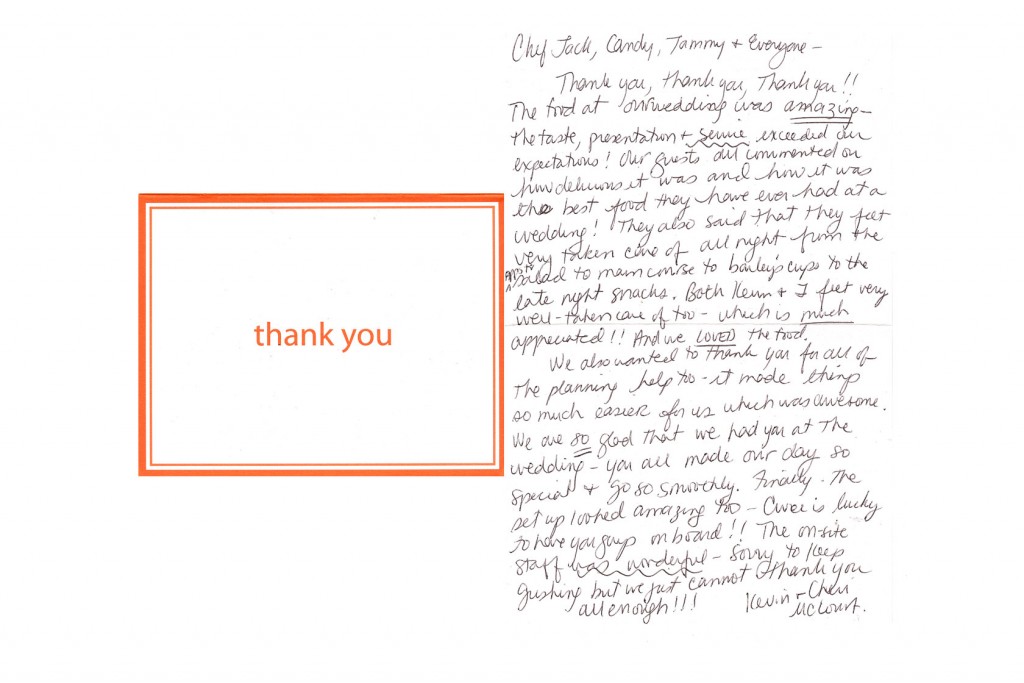 thank you
Chef Jack, Candy, Tammy + Everyone -
Thank you, thank you, Thank you!!
The food at our wedding was amazing -
the taste, presentation + service exceeded our
expectations! Our guests all commented on
how delicious it was and how it was
the best food they have ever had at a
wedding! They also said that they felt
very taken care of all night from the
apps to salad to main course to bailey's cups to the
late night snacks. Both Kevin + I felt very
well-taken care of too - which is much
appreciated!! And we LOVED the food.
We also wanted to thank you for all of
the planning help too - it made things
so much easier for us which was awesome.
We are so glad that we had you at the
wedding - you all made our day so
special + go so smoothly. Finally - The
set up looked amazing too - is lucky
to have you guys on board!! The on-site
staff was wonderful - Sorry to keep
gushing but we just cannot thank you
all enough!!! Kevin + Cheri
McCourt.